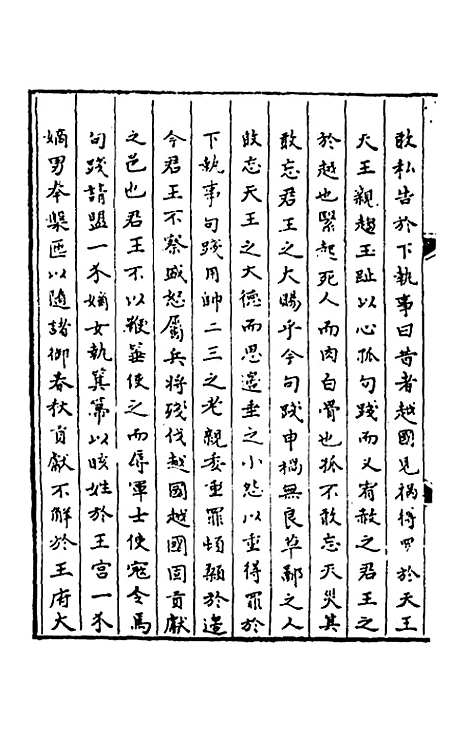 敢私告於下執事曰昔者越國見禍得罪於天王
天王親趨玉趾以心孤句踐而又宥赦之君王之
於越也緊起死人而肉白骨也孤不敢忘天災其
敢忘君王之大賜乎今句踐申禍無良草鄙之人
敢忘天王之大德而思邊垂之小怨以重得罪於
下執事句踐用帥二三之老親委重罪頓顙於邊
今君王不察盛怒屬兵將殘伐越國越國固貢獻
之邑也君王不以鞭箠使之而辱軍士使寇令焉
句踐請盟一介嫡女執箕箒以晐姓於王宮一介
嫡男奉槃匜以隨諸御春秋貢獻不解於王府大